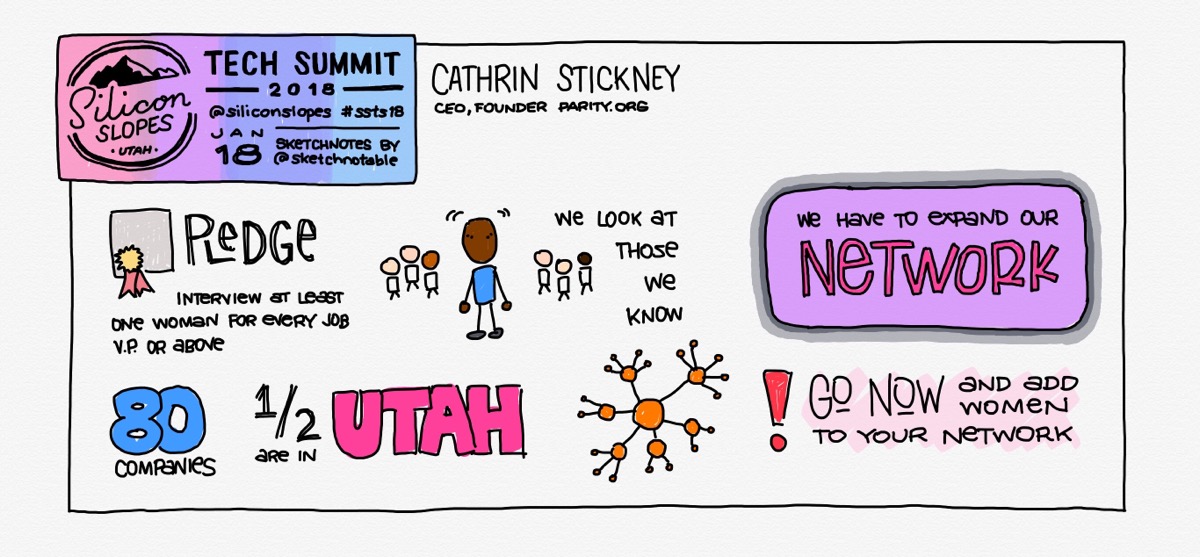 Silicon
SLOPES
·UTAH·
TECH SUMMIT
2018
@siliconslopes #ssts18
JAN
18
SKETCHNOTES BY
@sketchnotable
CATHRIN STICKNEY
CEO, FOUNDER PARITY.ORG
PLEDGE
INTERVIEW AT LEAST
ONE WOMAN FOR EVERY JOB
V.P. OR ABOVE
WE LOOK AT
THOSE
WE
KNOW
WE HAVE TO EXPAND OUR
NETWORK
80
COMPANIES
1/2
ARE IN
UTAH
! GO NOW AND ADD
WOMEN
TO YOUR NETWORK